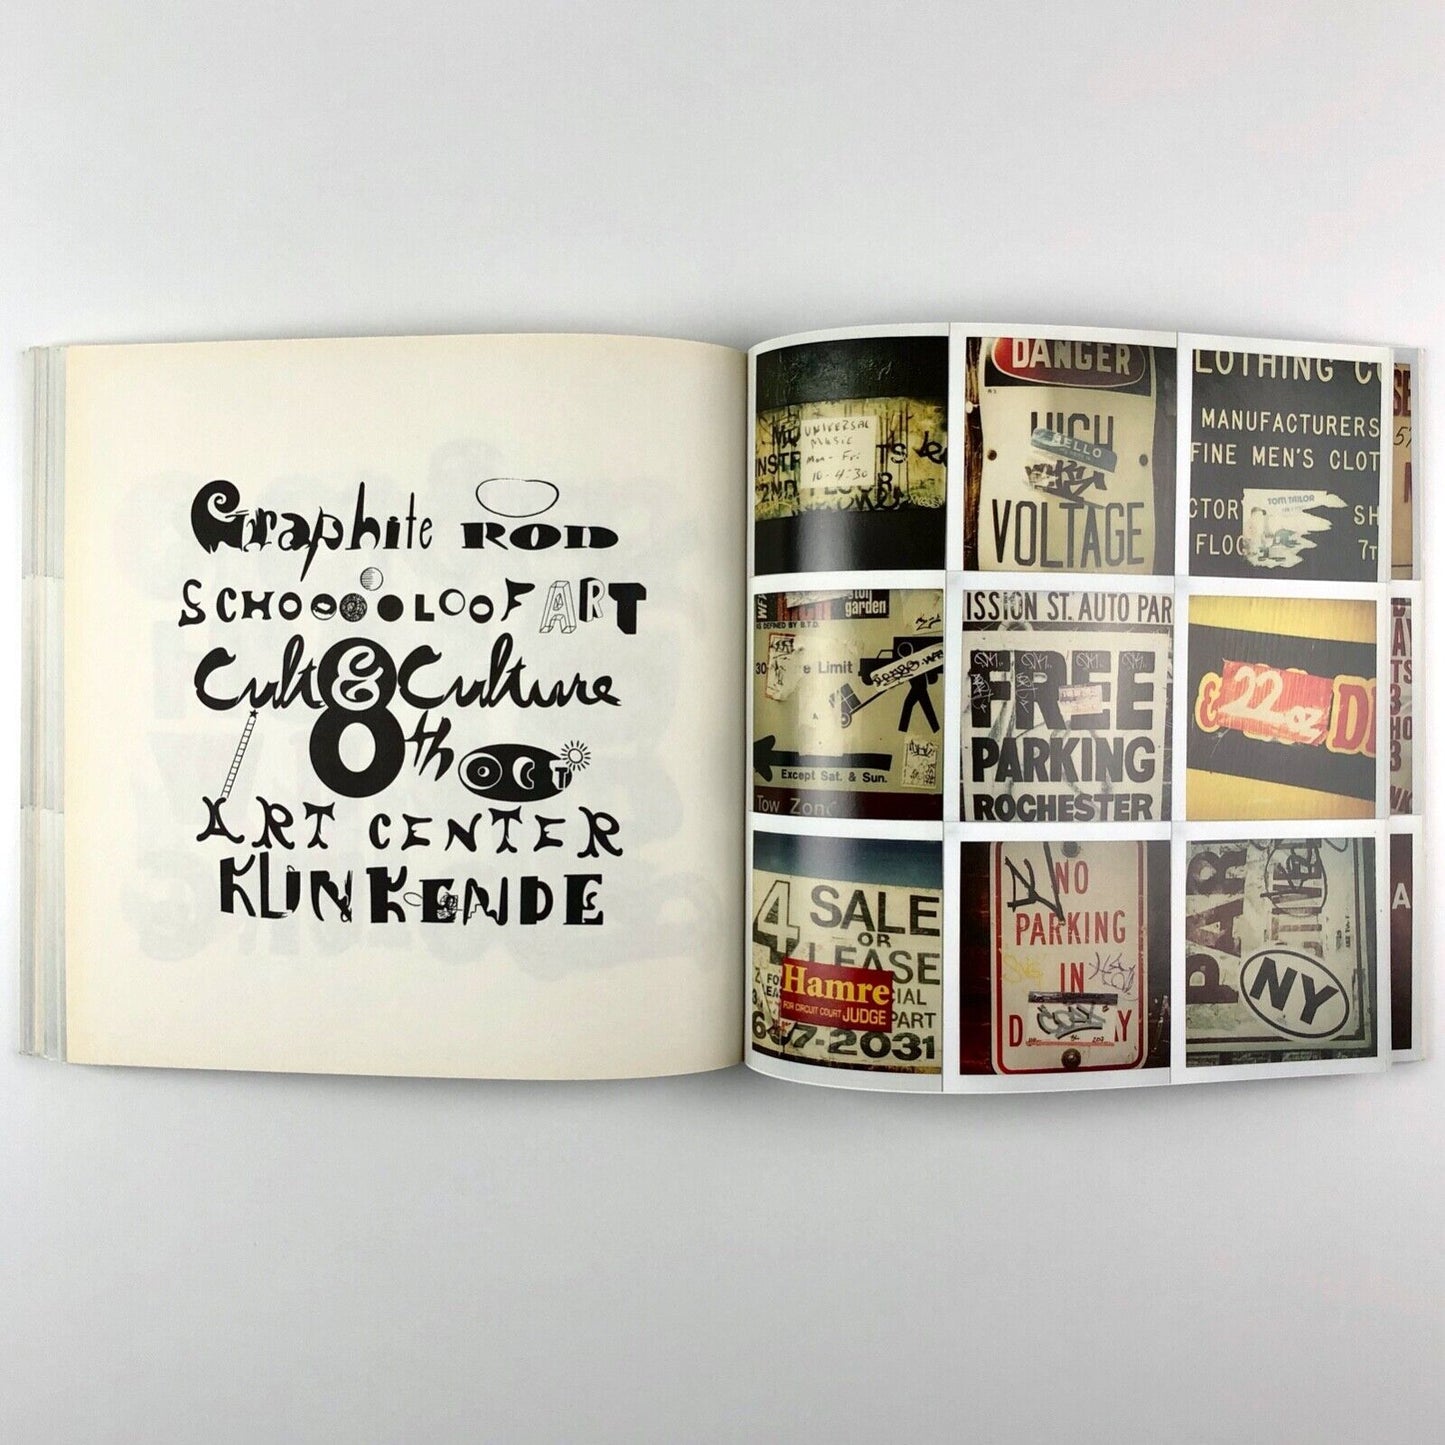 Graphite ROD
SCHOOOOLOOF ART
Cult & Culture
8th OCT
ART CENTER
KLINKENDE
UNIVERSAL
MUSIC
Mon - Fri
10 - 4:30
2ND FLOOR
DANGER
HIGH
HELLO
VOLTAGE
LOTHING CO
MANUFACTURERS
FINE MEN'S CLOT
TOM TAILOR
CTOR
SH
FLOO
7T
garden
AS DEFINED BY B.T.D.
30
e Limit
Except Sat. & Sun.
Tow Zone
ISSION ST. AUTO PAR
FREE
PARKING
ROCHESTER
& 22 oz D
4 SALE
OR
LEASE
Hamre
FOR CIRCUIT COURT JUDGE
CIAL
PART
647-2031
NO
PARKING
IN
D AY
PAR
NY
A